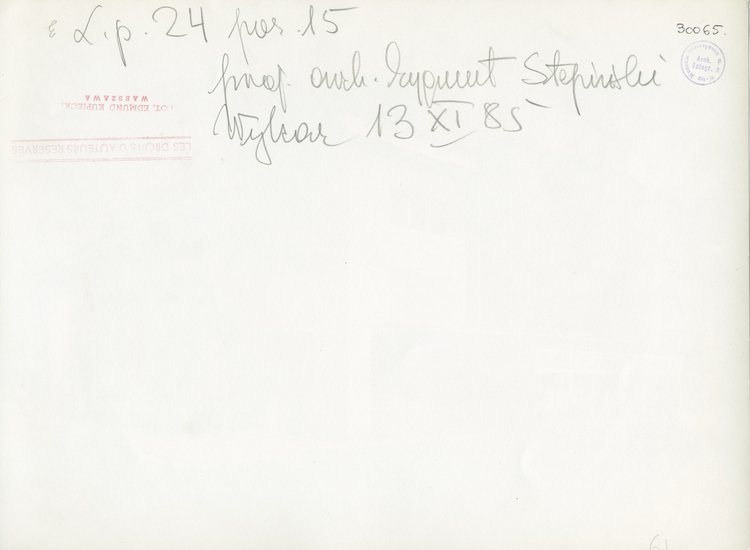 L.p. 24 poz. 15
30065.
proj. arch. Zygmunt Stępiński
13 XI 85
FOT. EDMUND KUPIECKI
WARSZAWA
LES DROITS D'AUTEURS RESERVÉS